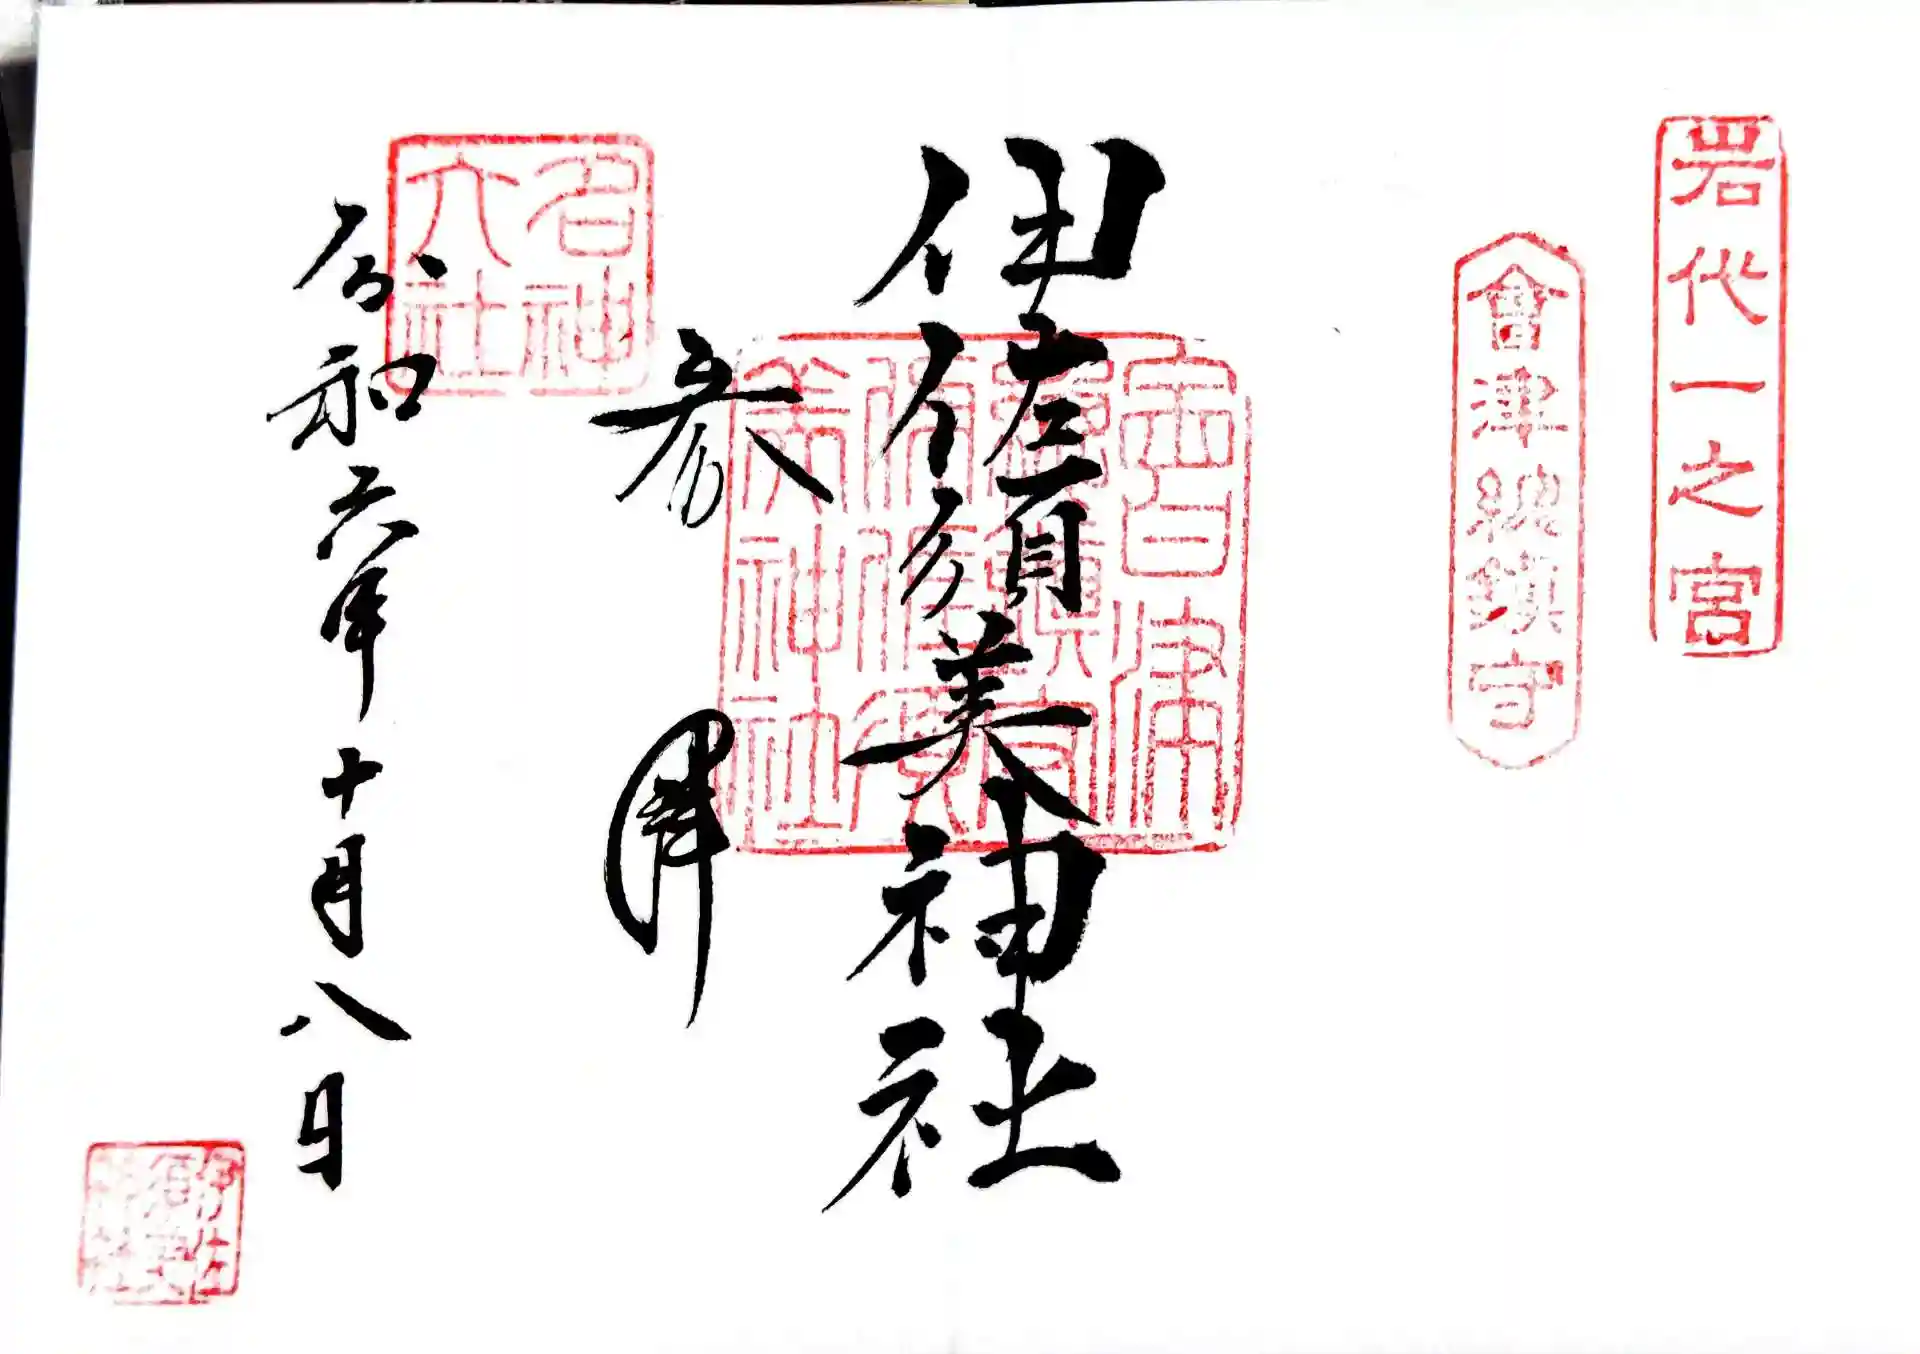 岩代一之宮
會津総鎮守
伊佐須美神社
奉
拝
名神
六社
令和六年十月八日
伊佐
須美
神社